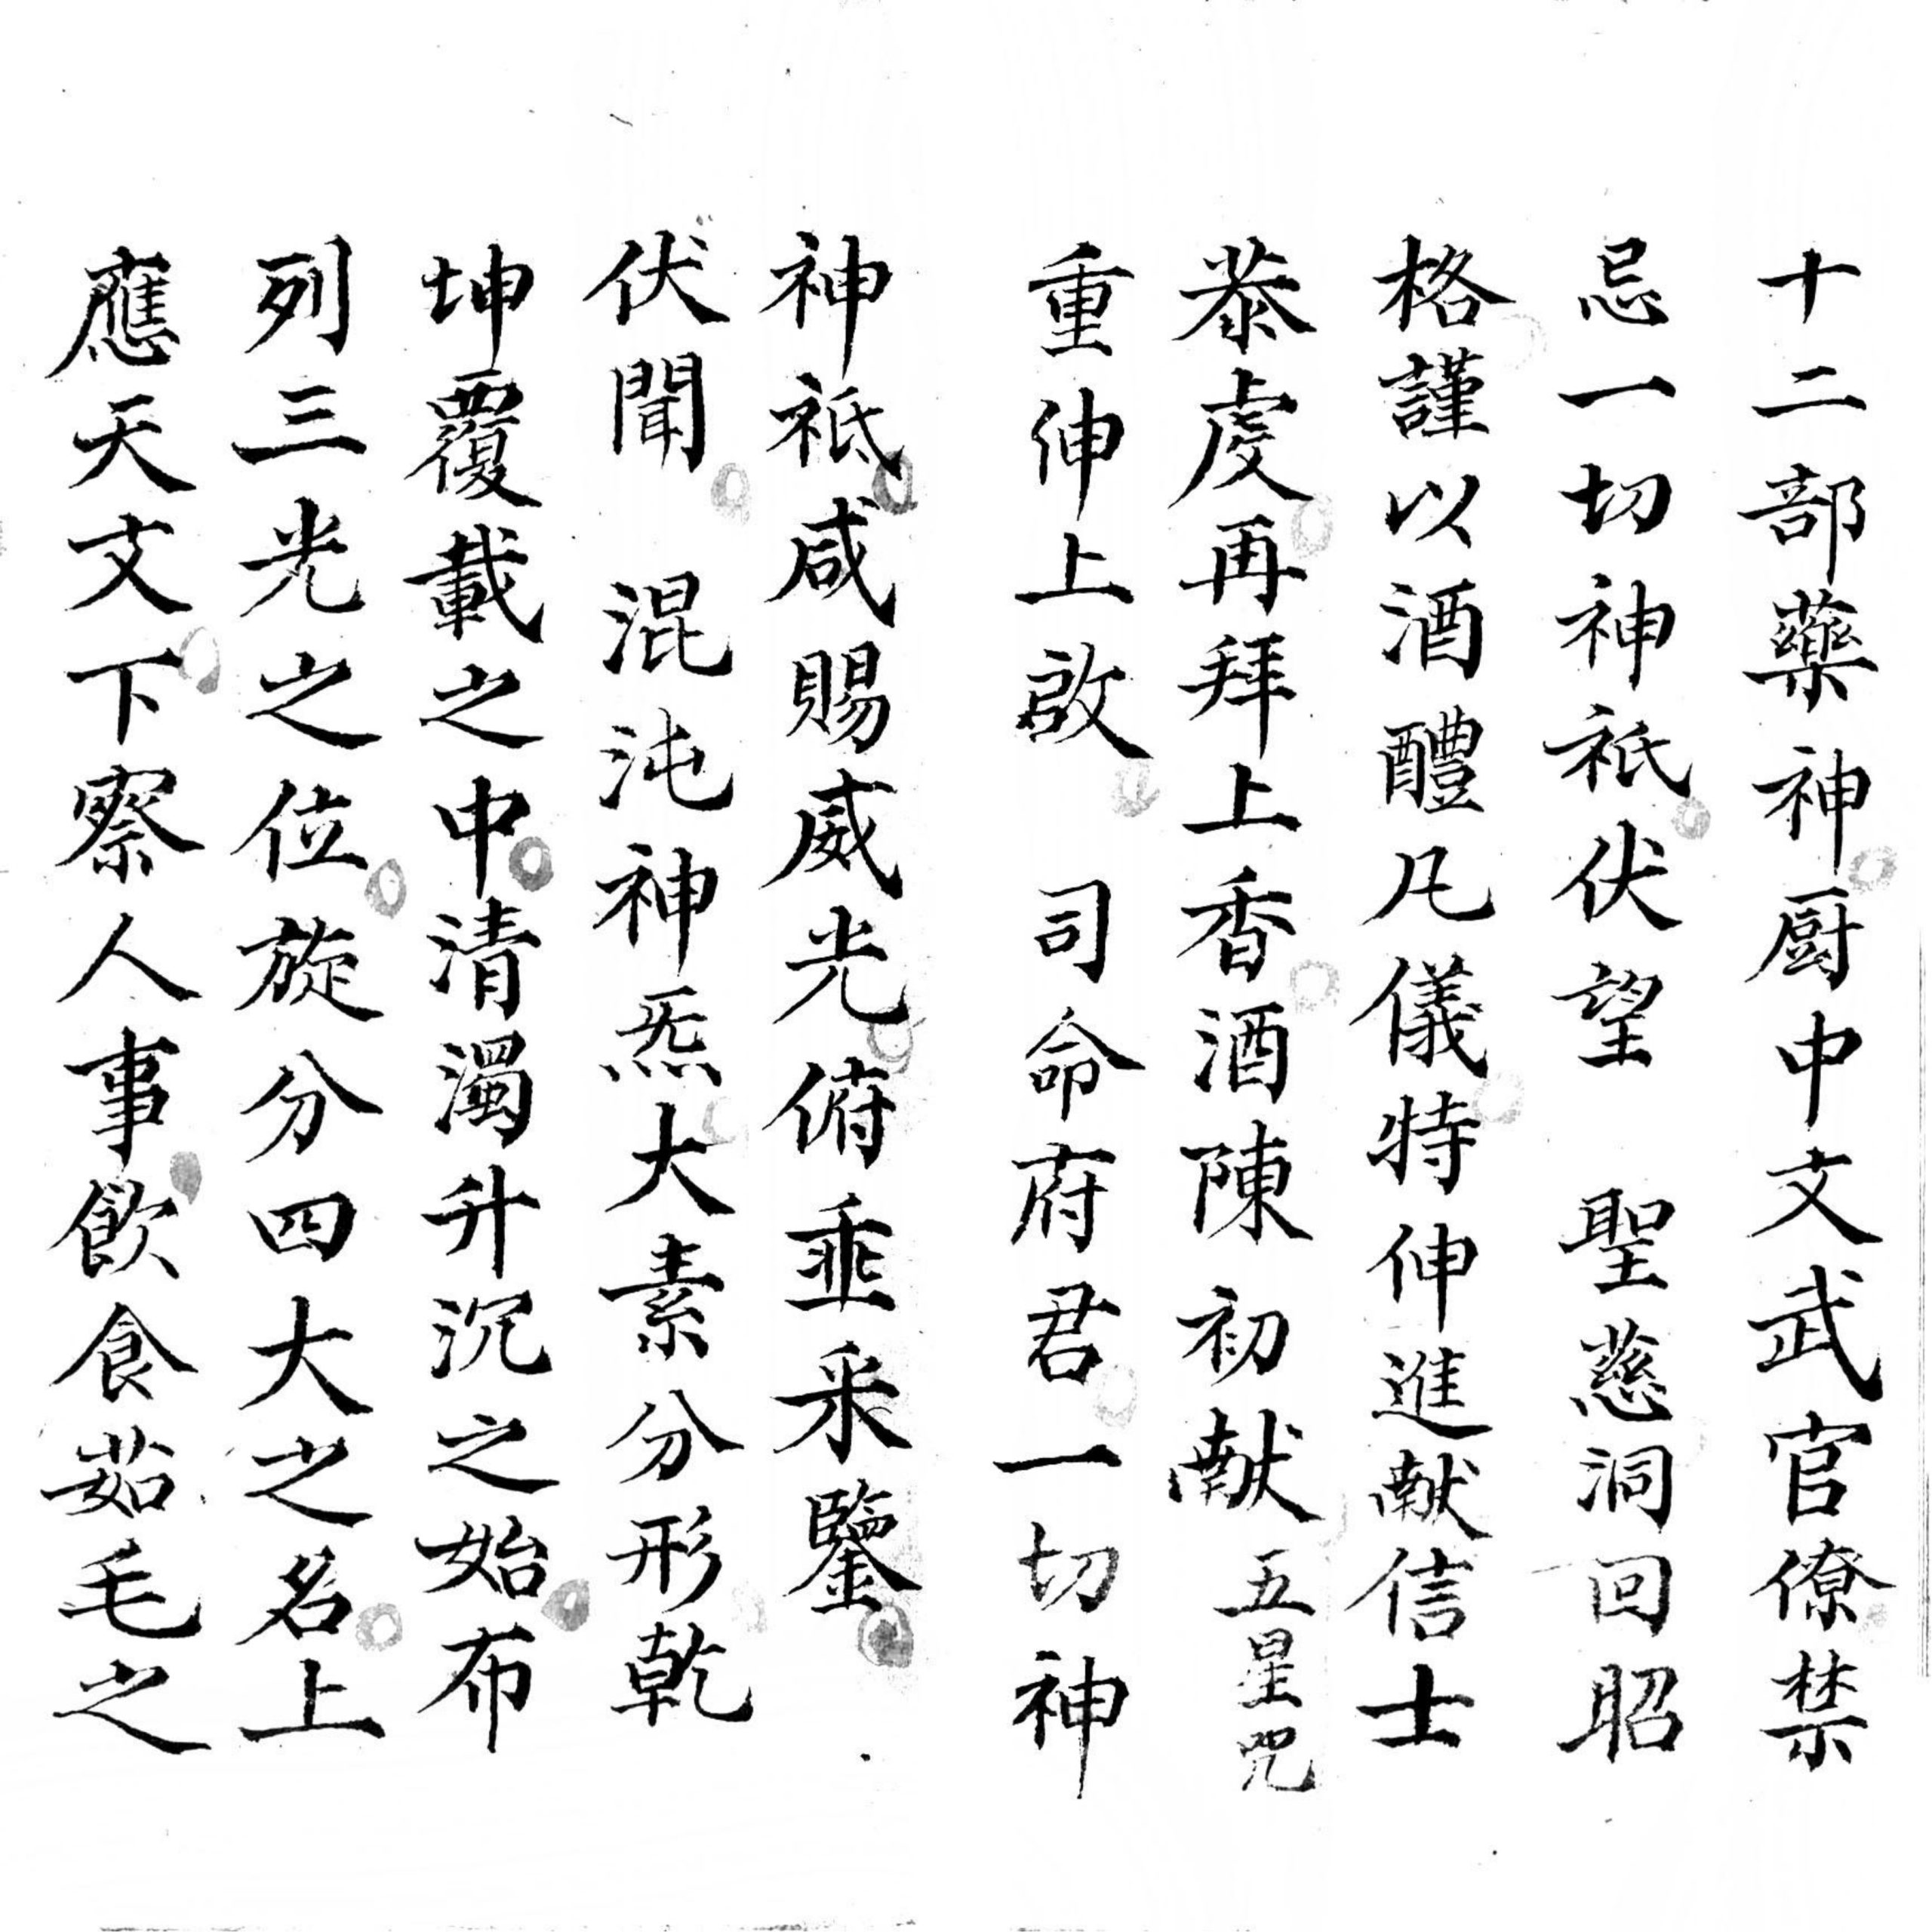 十二部藥神厨中文武官僚禁
忌一切神祇伏望　聖慈洞回昭
格謹以酒醴凡儀特伸進献信士
恭虔再拜上香酒陳初献五星咒
重伸上啟　司命府君一切神
神祇咸賜威光俯垂采鑒
伏聞　混沌神炁大素分形乾
坤覆載之中清濁升沉之始布
列三光之位旋分四大之名上
應天文下察人事飲食茹毛之